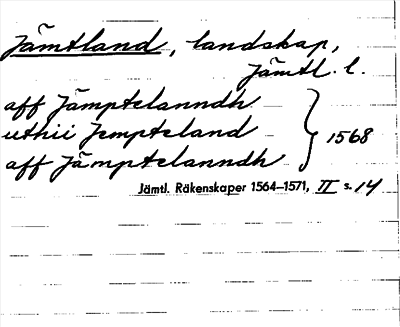 Jämtland, landskap,
Jämtl. l.
aff Jämptelanndh
uthii Jempteland
aff Jämptelanndh
1568
Jämtl. Räkenskaper 1564–1571, II s. 14